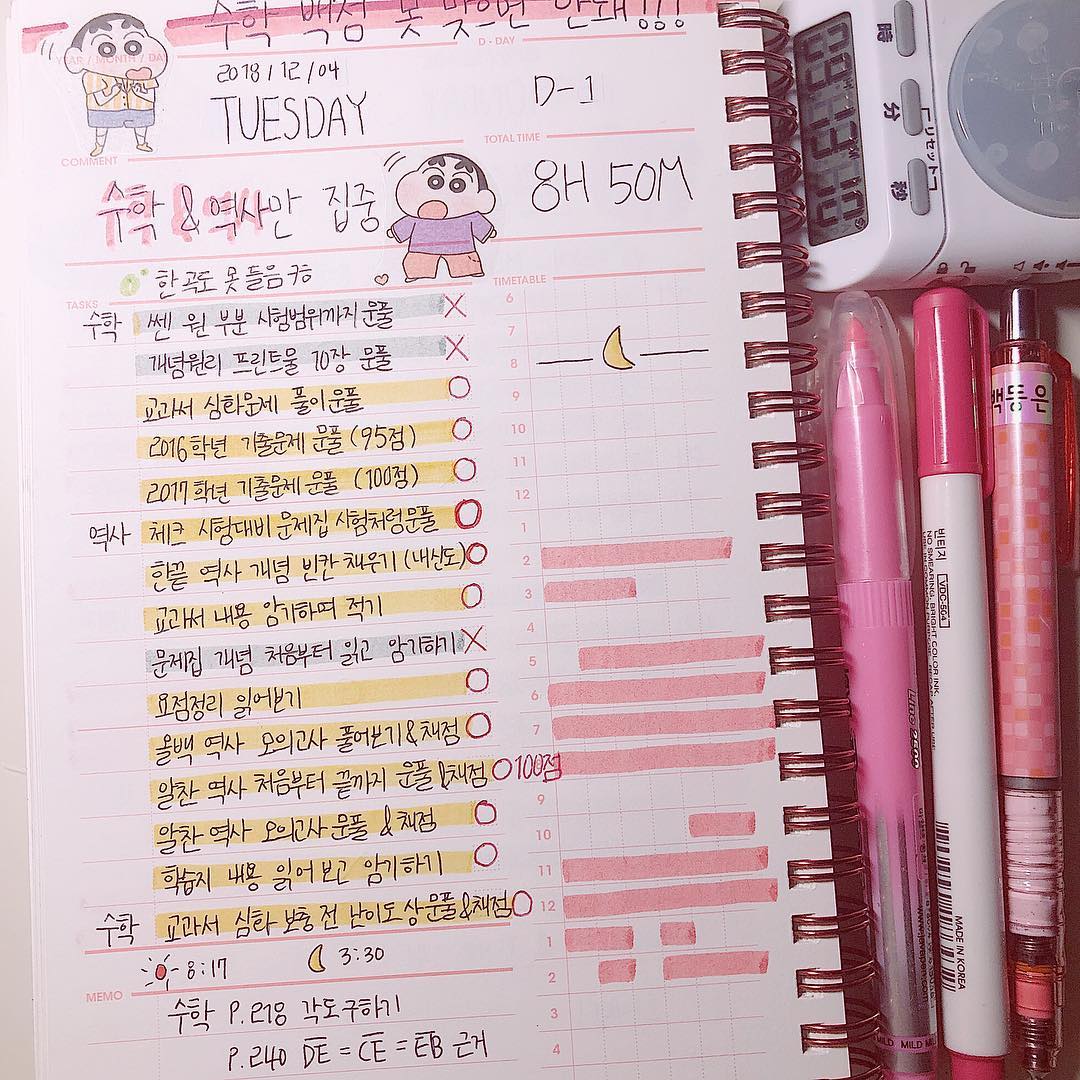 수학 백점 못 맞으면 안돼!!!
YEAR / MONTH / DAY
D - DAY
2018/12/04
TUESDAY
D-1
COMMENT
TOTAL TIME
수학 & 역사만 집중
8H 50M
한 곡도 못 들음 ㅋㅎ
TASKS
TIMETABLE
수학 쎈 원 부분 시험범위까지 문풀 X
개념원리 프린트물 10장 문풀 X
교과서 심화문제 풀이문풀 O
2016학년 기출문제 문풀 (95점) O
2017학년 기출문제 문풀 (100점) O
역사 체크 시험대비 문제집 시험처럼문풀 O
한끝 역사 개념 빈칸 채우기 (내신도) O
교과서 내용 암기하며 적기 O
문제집 개념 처음부터 읽고 암기하기 X
요점정리 읽어보기 O
올백 역사 모의고사 풀어보기&채점 O
알찬 역사 처음부터 끝까지 문풀&채점 O 100점
알찬 역사 모의고사 문풀 & 채점 O
학습지 내용 읽어보고 암기하기 O
수학 교과서 심화 보충 전 난이도 상 문풀&채점 O
6
7
8
9
10
11
12
1
2
3
4
5
6
7
9
10
11
12
1
2
3
4
8:17
3:30
MEMO
수학 P.218 각도구하기
P.240 DE = CE = EB 근거
時
分
秒
リセット
빈티지
VDC-504
NO SMEARING, BRIGHT COLOR INK.
MADE IN KOREA
www.javapen.com
MILD
백통은